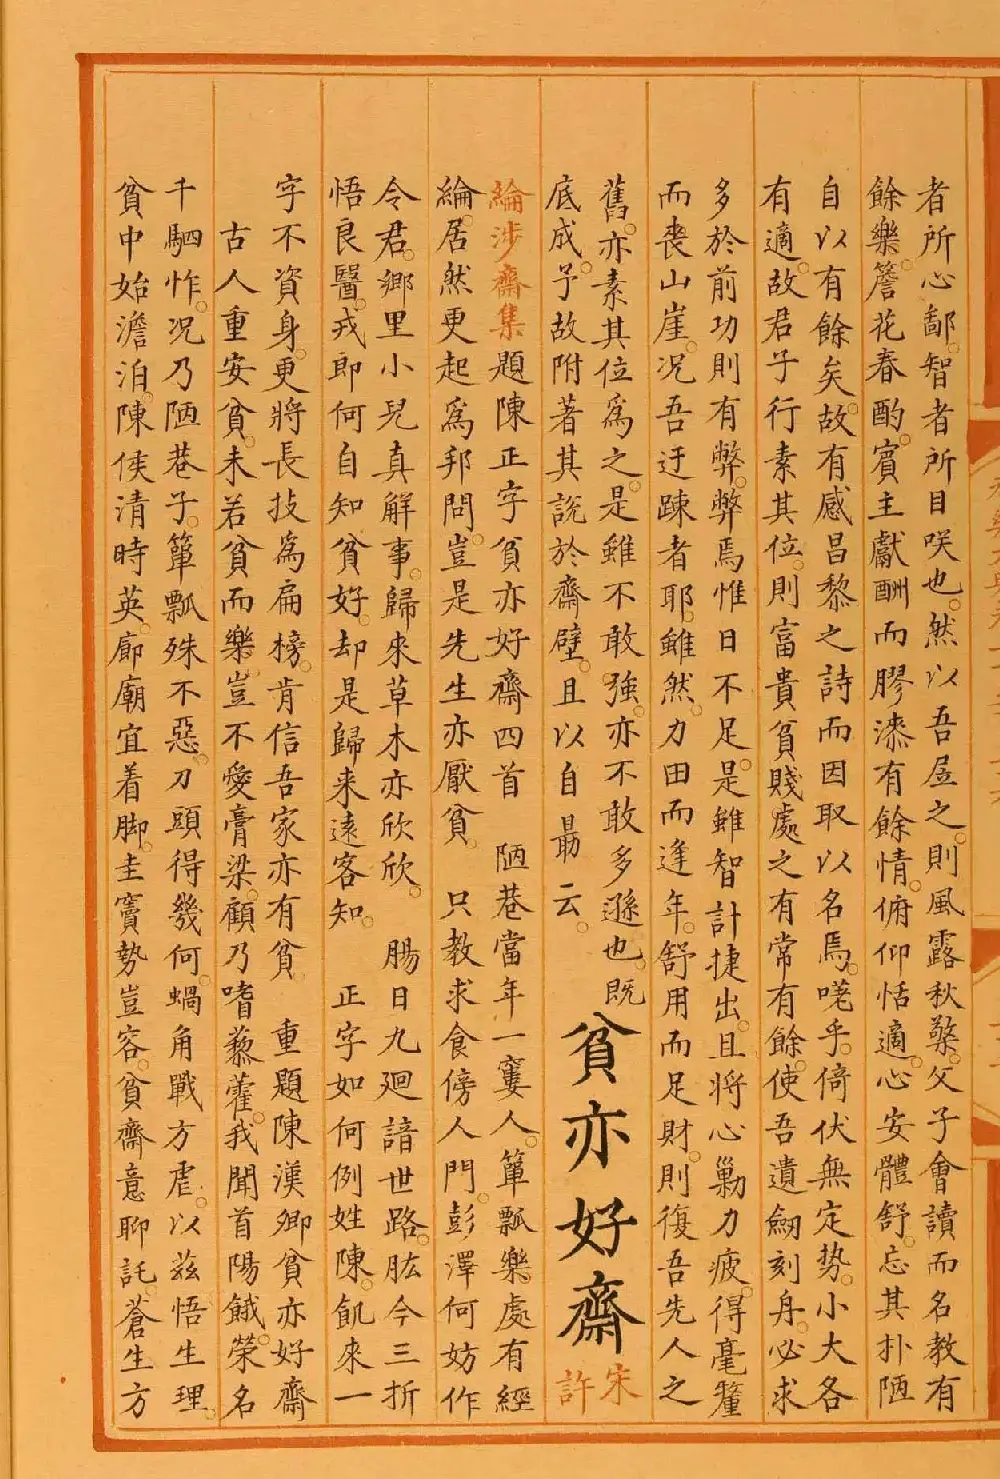 者所心鄙。智者所目咲也。然以吾居之。則風露秋檠。父子會讀而名教有
餘樂。簷花春酌。賓主獻酬而膠漆有餘情。俯仰恬適。心安體舒。忘其朴陋
自以有餘矣。故有感昌黎之詩而因取以名焉。嗟乎。倚伏無定勢。小大各
有適。故君子行素其位。則富貴貧賤處之有常有餘。使吾遺劒刻舟。必求
多於前功則有弊。弊焉惟日不足。是雖智計捷出。且將心勦力疲。得毫釐
而喪山崖。况吾迂踈者耶。雖然。力田而逢年。舒用而足財。則復吾先人之
舊。亦素其位爲之。是雖不敢強。亦不敢多遜也。既
底成。予故附著其説於齋壁。且以自勗云。
貧亦好齋
宋
許
綸涉齋集題陳正字貧亦好齋四首 陋巷當年一窶人。簞瓢樂處有經
綸。居然更起爲邦問。豈是先生亦厭貧。 只教求食傍人門。彭澤何妨作
令君。鄉里小兒真解事。歸來草木亦欣欣。 腸日九廻諳世路。肱今三折
悟良醫。戎即何自知貧好。却是歸来遠客知。 正字如何例姓陳。飢來一
字不資身。更將長技爲扁榜。肯信吾家亦有貧。 重題陳漢卿貧亦好齋
古人重安貧。未若貧而樂。豈不愛膏梁。顧乃嗜藜藿。我聞首陽餓。榮名
千駟怍。况乃陋巷子。簞瓢殊不惡。刀頭得幾何。蝸角戰方虐。以兹悟生理。
貧中始澹泊。陳侯清時英。廊廟宜着脚。圭竇勢豈容。貧齋意聊託。蒼生方